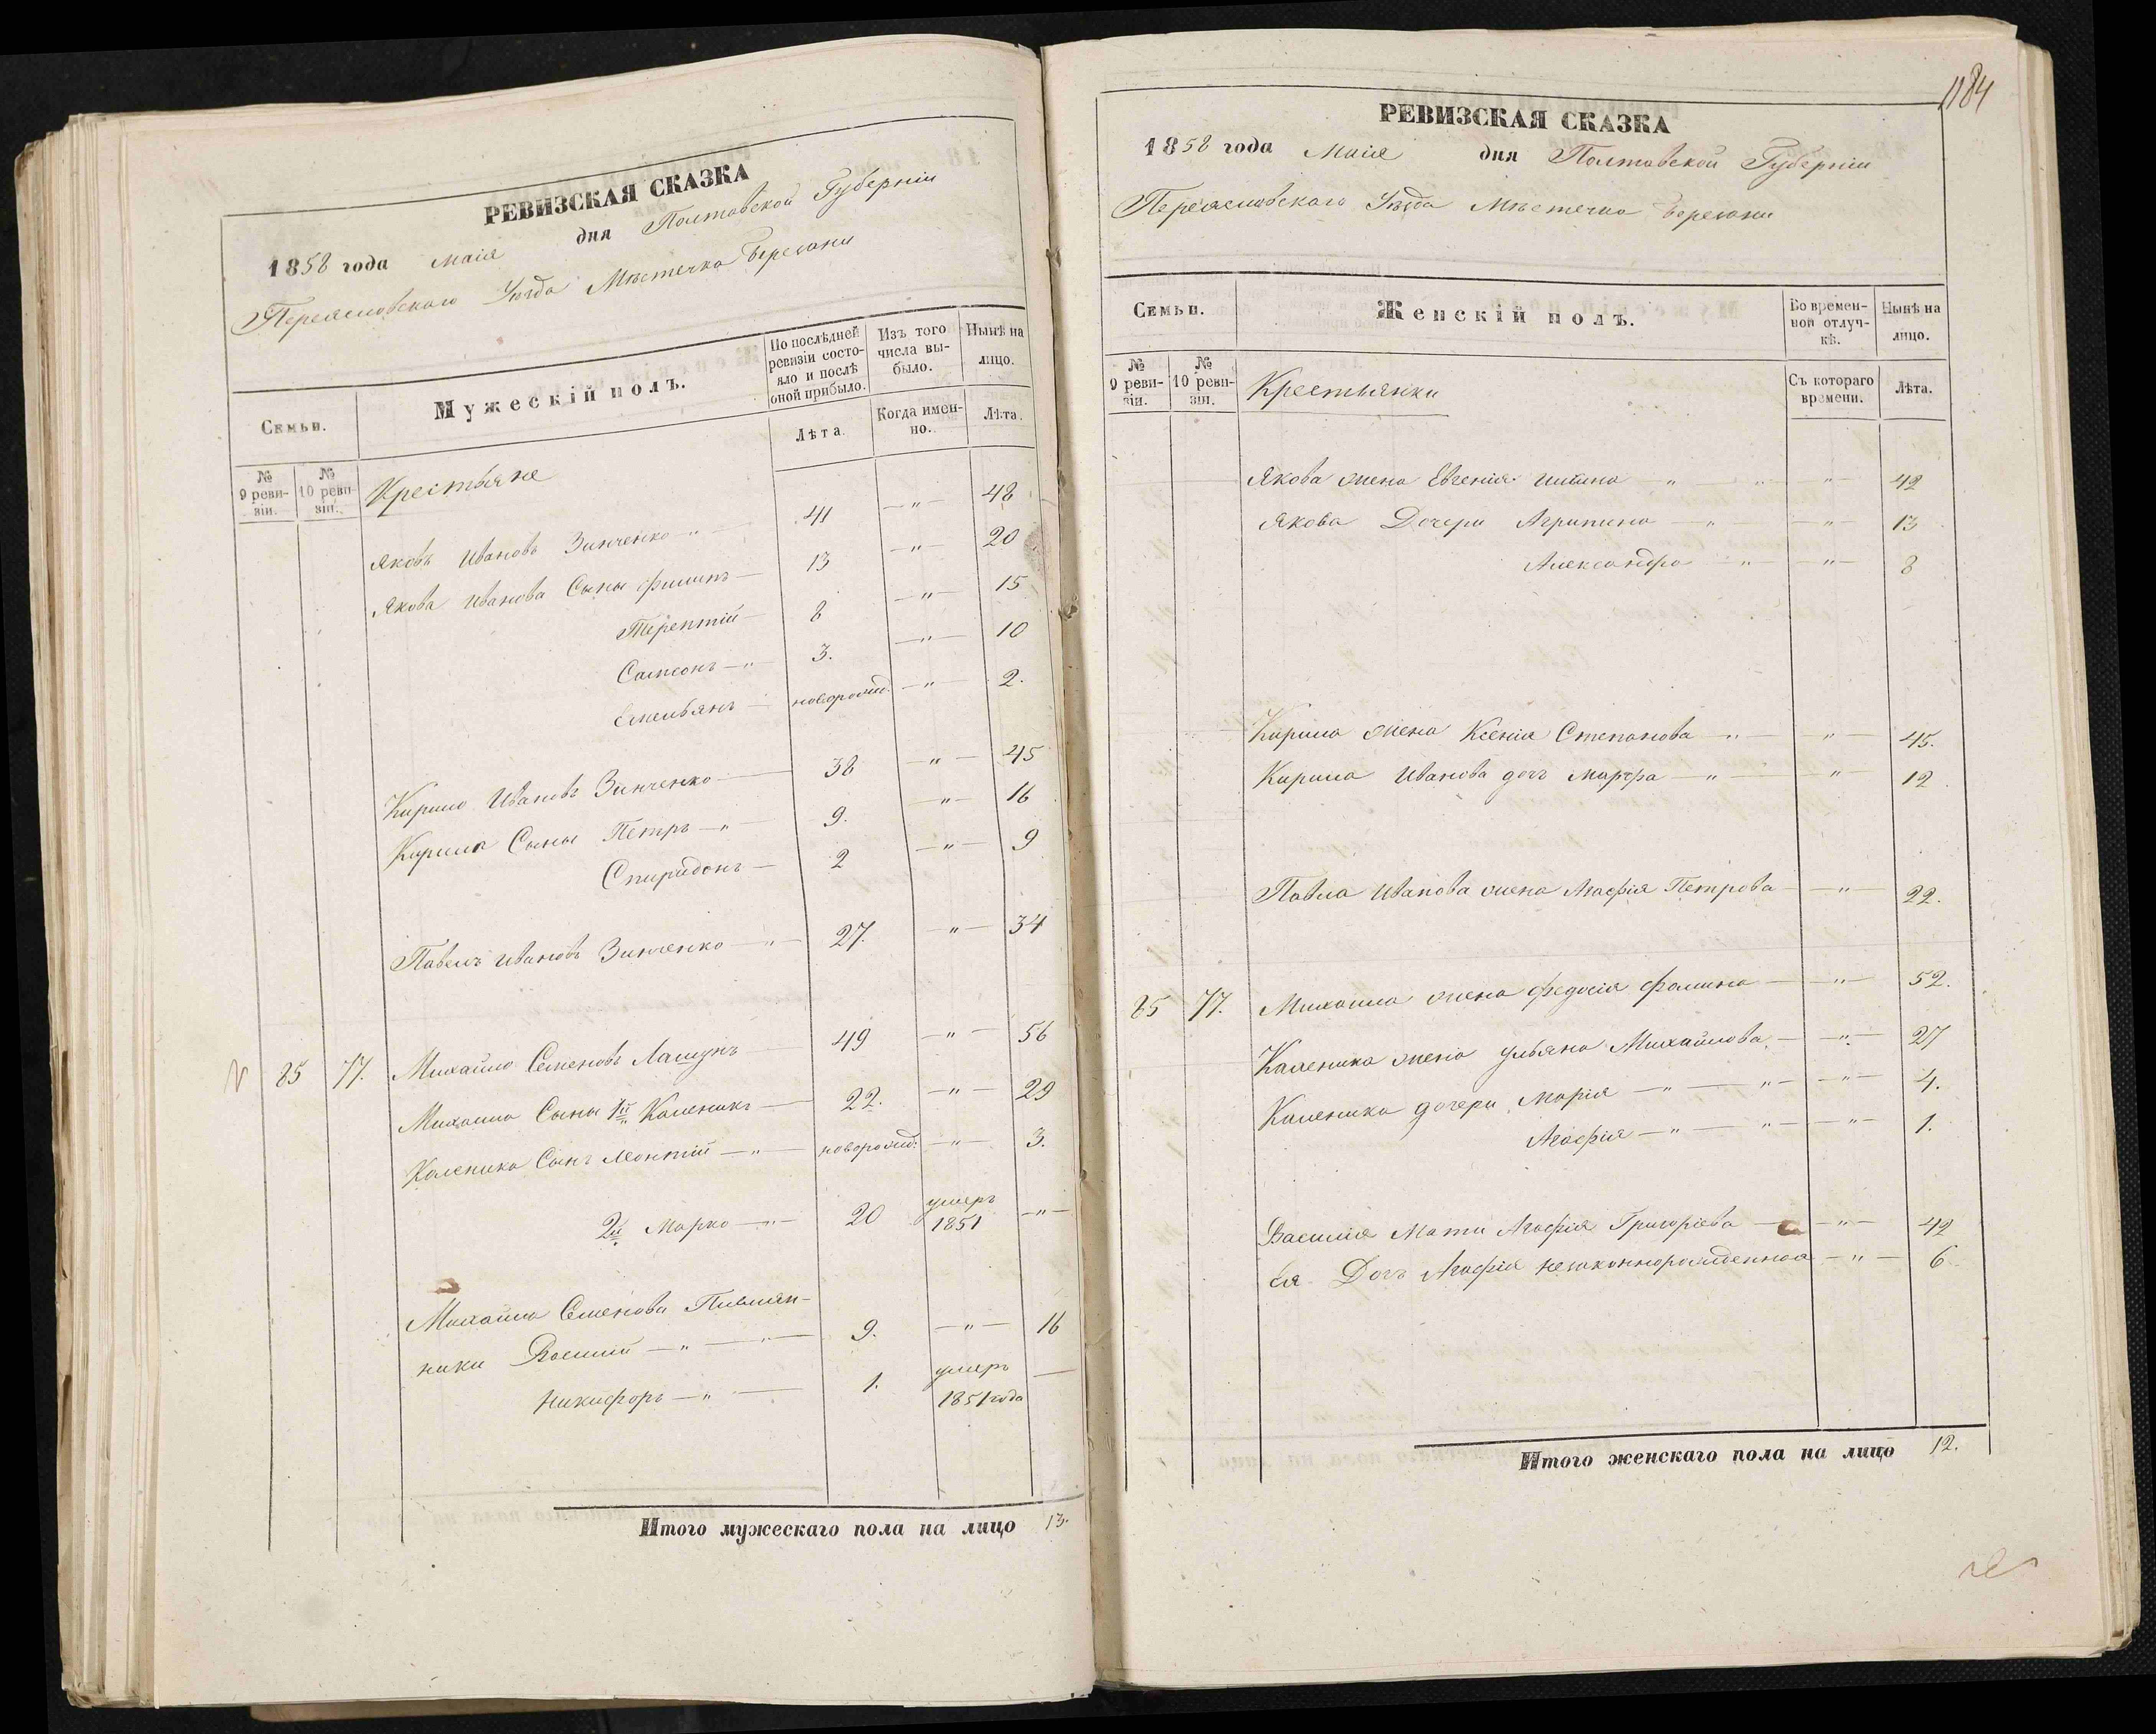 РЕВИЗСКАЯ СКАЗКА
1858 года маія дня Полтавской Губерніи
Переясловскаго Уѣзда Мѣстечка Березани
Семьи.
Мужескій полъ.
По послѣдней ревизіи состояло и послѣ оной прибыло.
Изъ того числа выбыло.
Нынѣ на лицо.
№ 9 ревизіи.
№ 10 ревизіи.
Крестьяне
Лѣта.
Когда именно.
Лѣта.
Яковъ Ивановъ Зинченко — " — 41 — " — 48
Якова Иванова Сыны Филипъ — 13 — " — 20
Терентій — 8 — " — 15
Самсонъ — " — 3. — " — 10
Емельянъ — новорожд. — " — 2.
Кирило Ивановъ Зинченко — 38 — " — 45
Кирила Сыны Петръ — " — 9. — " — 16
Спиридонъ — 2 — " — 9
Павелъ Ивановъ Зинченко — " — 27. — " — 34
85 77. Михайло Семеновъ Лашунъ — 49 — " — 56
Михаила Сыны 1й Каленикъ — 22. — " — 29
Каленика Сынъ Леонтій — " — новорожд: — " — 3.
2й Марко — " — 20 умеръ 1851 — " —
Михаила Семенова Племян-
ники Василий — " — " — 9. — " — 16
Никифоръ — " — 1. умеръ 1851 года —
Итого мужескаго пола на лицо 13.
1184
РЕВИЗСКАЯ СКАЗКА
1858 года Маія дня Полтавской Губерніи
Переясловскаго Уѣзда Мѣстечка Березани
Семьи.
Женскій полъ.
Во временной отлучкѣ.
Нынѣ на лицо.
№ 9 ревизіи.
№ 10 ревизіи.
Крестьянки
Съ котораго времени.
Лѣта.
Якова жена Евгенія — " — " — " — 42
Якова Дочери Агрипина — " — " — 13
Александра — " — " — 8
Кирила жена Ксенія Степанова — " — " — 45.
Кирила Иванова дочь Марфа — " — " — 12
Павла Иванова жена Агафія Петрова — " — 22.
85 77. Михаила жена Федосія Фомина — " — 52.
Каленика жена Ульяна Михайлова. — " — 27
Каленика дочери Марія — " — " — " — 4.
Агафія — " — " — " — 1.
Василія Мати Агафія Григоріева — " — 42
Ея Дочь Агафія незаконнорожденная — " — 6
Итого женскаго пола на лицо 12.